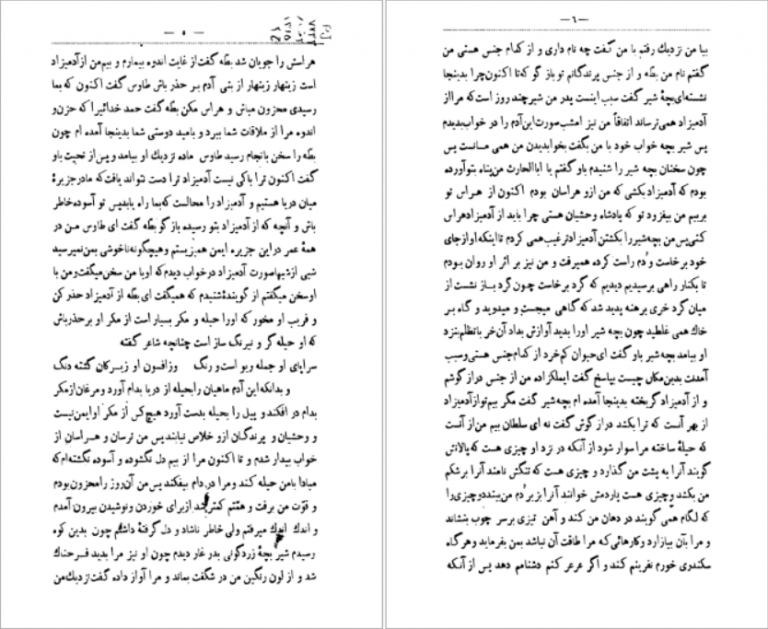 — ۵ —
هراسش را جویان شد بطه گفت از غایت اندوه بیمارم و بیم من از آدمیزاد
است زینهار زینهار از بنی آدم بر حذر باش طاوس گفت اکنون که بما
رسیدی محزون مباش و هراس مکن بطه گفت حمد خدائیرا که حزن و
اندوه مرا از ملاقات شما ببرد و بامید دوستی شما بدینجا آمده ام چون
بطه را سخن بانجام رسید طاوس ماده نزدیك او بیامد و پس از تحیت باو
گفت اکنون ترا باکی نیست آدمیزاد ترا دست نتواند یافت که مادر جزیرهٔ
میان دریا هستیم و آدمیزاد را محالست که بما راه یابد پس تو آسوده خاطر
باش و آنچه که از آدمیزاد بتو رسیده باز گو بطه گفت ای طاوس من در
همهٔ عمر در این جزیره ایمن همیزیستم و هیچگونه ناخوشی بمن نمیرسید
شبی از شبها صورت آدمیزاد در خواب دیدم که او با من سخن میگفت و من با
او سخن میگفتم از گویندهٔ شنیدم که همیگفت ای بطه از آدمیزاد حذر کن
و فریب او مخور که اورا حیله و مکر بسیار است از مکر او بر حذر باش
که او حیله گر و نیرنگ ساز است چنانچه شاعر گفته
سراپای او جمله ریو است و رنگ وز افسون او زیرکان گشته دنگ
و بدانکه این آدم ماهیان را بحیله از دریا بدام آورد و مرغان از مکر
بدام در افکند و پیل را بحیله بدست آورد هیچ کس از مکر او ایمن نیست
و وحشیان و پرندگان ازو خلاص نیابند پس من ترسان و هراسان از
خواب بیدار شدم و تا اکنون مرا از بیم دل نگشوده و آسوده نگشته ام که
مبادا با من حیله کند و مرا در دام بیفکند پس من آن روز را محزون بودم
و قوّت من برفت و هشتم کمتر شد از برای خوردن و نوشیدن بیرون آمدم
و اندك اندك میرفتم ولی خاطر ناشاد و دل گرفتهٔ داشتم چون بدین کوه
رسیدم شیر بچهٔ زردگونی بدر غار دیدم چون او نیز مرا بدید فرحناك
شد و از لون رنگین من در شگفت بماند و مرا آواز داده گفت نزدیك من
— ٦ —
بیا من نزدیك رفتم با من گفت چه نام داری و از کدام جنس هستی من
گفتم نام من بطه و از جنس پرندگانم تو باز گو که تا اکنون چرا بدینجا
نشسته‌ای بچهٔ شیر گفت سبب اینست پدر من شیر چند روز است که مرا از
آدمیزاد همی ترساند اتفاقاً من نیز امشب صورت این آدم را در خواب بدیدم
پس شیر بچه خواب خود با من بگفت بخوابدیدن من همی مانست پس
چون سخنان بچه شیر را شنیدم باو گفتم یا اباالحارث من پناه بتو آورده
بودم که آدمیزاد بکشی که من ازو هراسان بودم اکنون از هراس تو
بربیم من بیفزود تو که پادشاه وحشیان هستی چرا باید از آدمیزاد هراس
کنی پس من بچه شیر را بکشتن آدمیزاد ترغیب همی کردم تا اینکه او از جای
خود برخاست و دُم راست کرده همیرفت و من نیز بر اثر او روان بودم
تا بکنار راهی برسیدیم دیدیم که گرد برخاست چون گرد باز نشست از
میان گرد خری برهنه پدید شد که گاهی میجست و میدوید و گاه بر
خاك همی غلطید چون بچه شیر اورا بدید آوازش بداد آن خر با تظلم نزد
او بیامد بچه شیر باو گفت ای حیوان کم خرد از کدام جنس هستی و سبب
آمدنت بدین مکان چیست بپاسخ گفت ایملکزاده من از جنس دراز گوشم
و از آدمیزاد گریخته بدینجا آمده ام بچه شیر گفت مگر بیم تو از آدمیزاد
از بهر آنست که ترا بکشد دراز گوش گفت نه ای سلطان بیم من از آنست
که حیلهٔ ساخته مرا سوار شود از آنکه در نزد او چیزی هست که پالانش
گویند آنرا به پشت من گذارد و چیزی هست که تنگش نامند آنرا بر شکم
من بکشد و چیزی هست پاردمش خوانند آنرا بزیر دُم من ببندد و چیزی را
که لگام همی گویند در دهان من کند و آهن تیزی بر سر چوب بنشاند
و مرا بآن بیازارد و کارهائی که مرا طاقت آن نباشد بمن بفرماید و هر گاه
سکندری خورم نفرینم کند و اگر عرعر کنم دشنامم دهد پس از آنکه